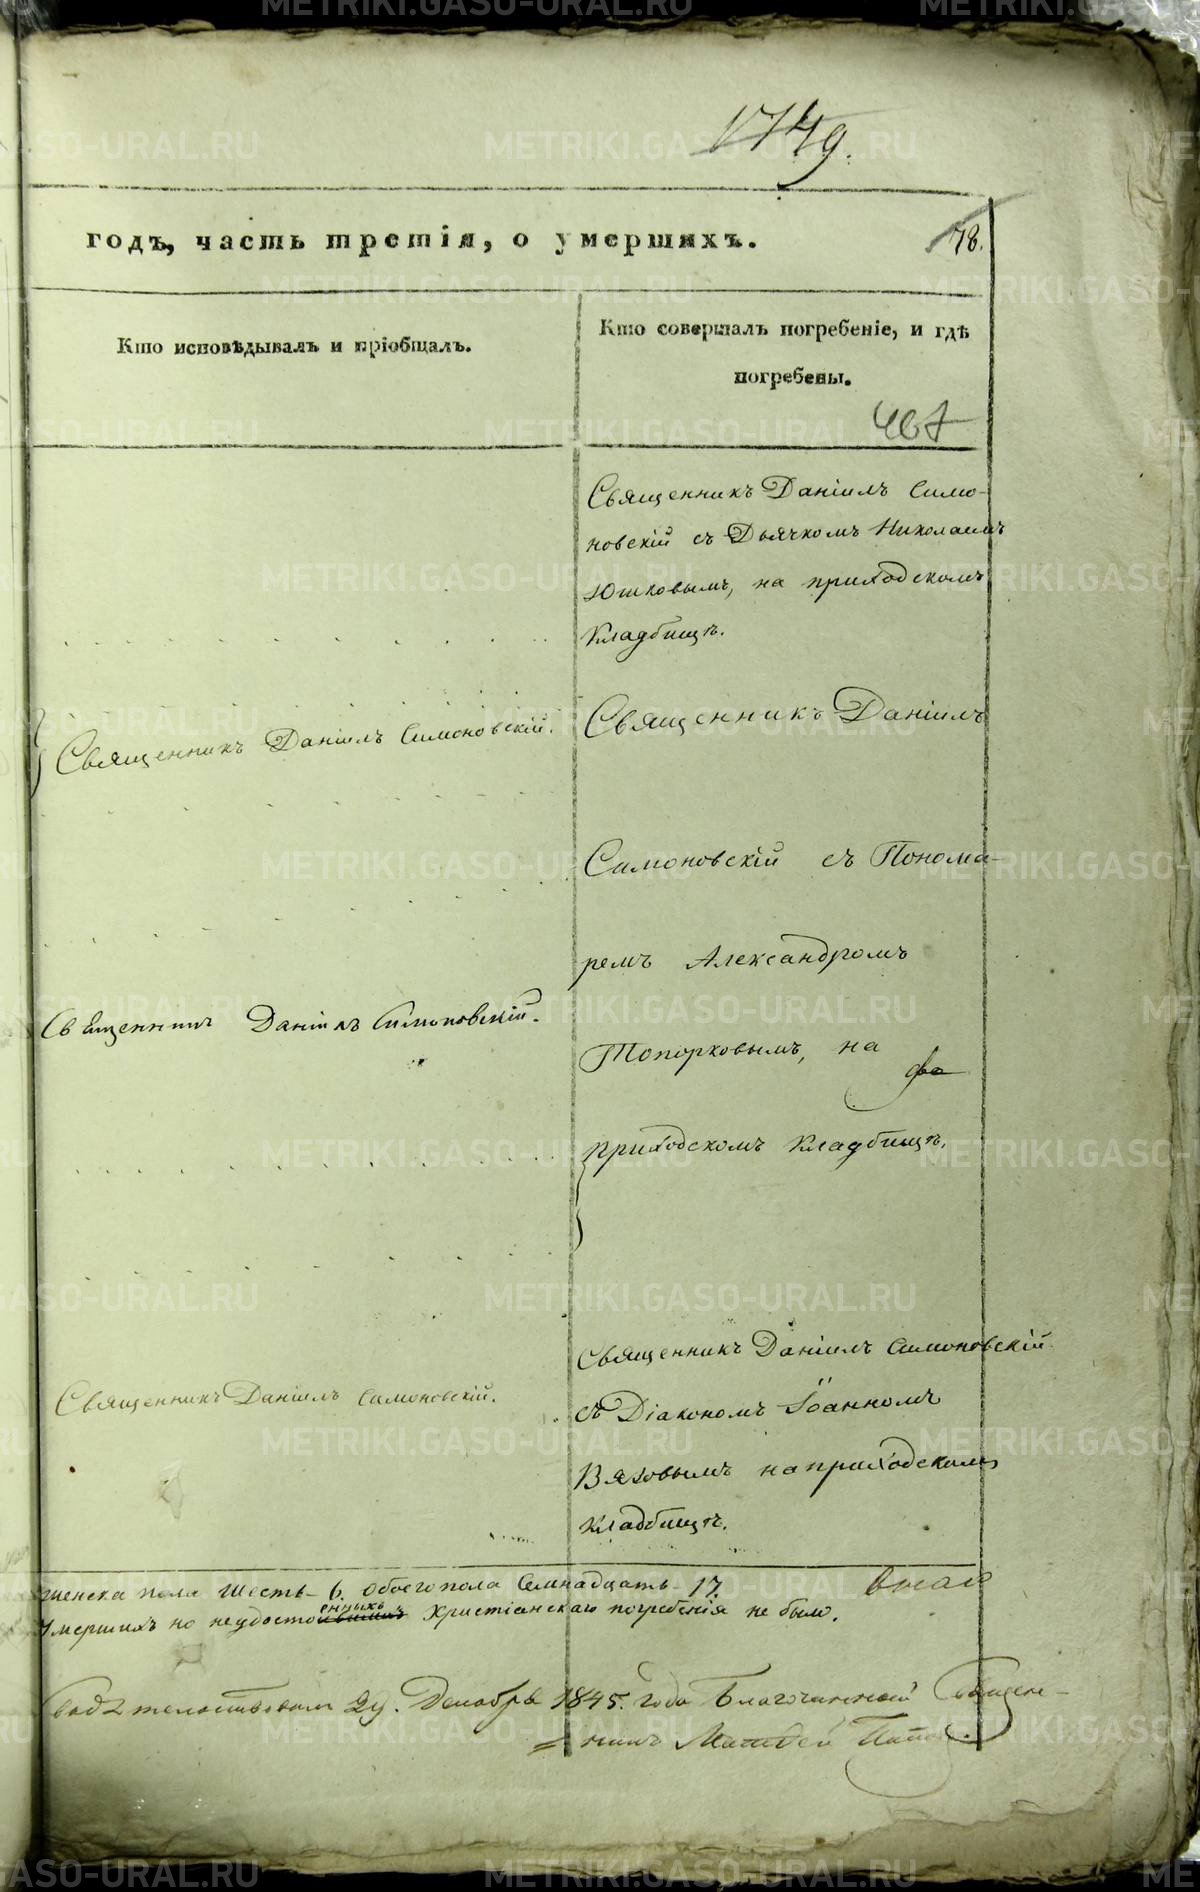 1749.
годъ, часть третія, о умершихъ.
78.
Кто исповѣдывалъ и пріобщалъ.
Кто совершалъ погребеніе, и гдѣ
погребены.
407
Священникъ Даніилъ Симо-
новскій съ Дьячкомъ Николаемъ
Юшковымъ, на приходскомъ
Кладбищѣ.
Священникъ Даніилъ Симоновскій.
Священникъ Даніилъ
Симоновскій съ Понома-
ремъ Александромъ
Священникъ Даніилъ Симоновскій.
Топорковымъ, на
приходскомъ Кладбищѣ.
Священникъ Даніилъ Симоновскій
Священникъ Даніилъ Симоновскій.
съ Діакономъ Іоанномъ
Вяховымъ на приходскомъ
кладбищѣ.
женска пола Шесть - 6. Обоего пола Семнадцать - 17.
Умершихъ но неудостоенныхъ Христіанскаго погребенія не было.
Свидѣтельствовалъ 29. Декабря 1845. года Благочинный Священ-
никъ Матвей
METRIKI.GASO-URAL.RU